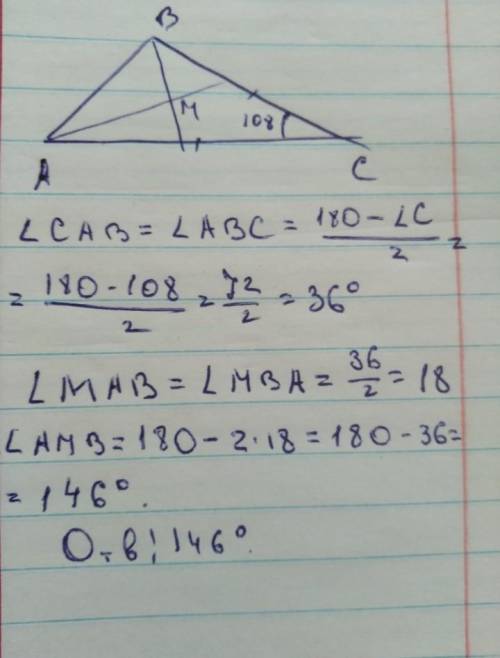 B
M
108
A
C
∠CAB = ∠ABC = (180 - ∠C)/2 =
= (180 - 108)/2 = 72/2 = 36°
∠MAB = ∠MBA = 36/2 = 18
∠AMB = 180 - 2·18 = 180 - 36 =
= 146°.
О-в: 146°.